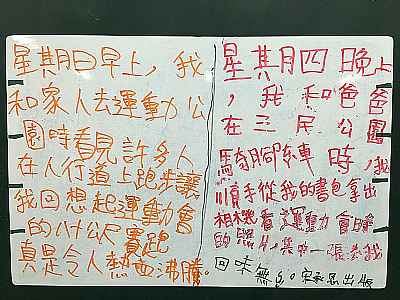 星期日早上，我
和家人去運動公
園時看見許多人
在人行道上跑步讓
我回想起運動會
的八十公尺賽跑
真是令人熱血沸騰。
星期四晚上
，我和爸爸
在三民公園
騎腳車時，我
順手從我的書包拿出
相機看運動會時
的照片，其中一張讓我
回味無。出版